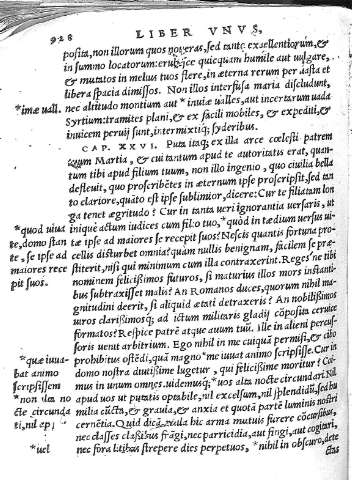 928 LIBER VNVS,
posita, non illorum quos noveras, sed tanto excellentiorum, &
in summo locatorum: erubesce quicquam humile aut vulgare,
& mutatos in melius tuos flere, in æterna rerum per vasta et
libera spacia dimissos. Non illos interfusa maria discludunt,
*imæ uall. nec altitudo montium aut *inuiæ ualles, aut incertarum uada
Syrtium: tramites plani, & ex facili mobiles, & expediti, &
inuicem peruij sunt, intermixtiq; syderibus.
CAP. XXVI. Puta itaq; ex illa arce cœlesti patrem
tuum Martia, & cui tantum apud te autoritatis erat, quan-
tum tibi apud filium tuum, non illo ingenio, quo ciuilia bella
defleuit, quo proscribētes in æternum ipse proscripsit, sed tan
to clariore, quāto est ipse sublimior, dicere: Cur te filia tam lon
ga tenet ægritudo? Cur in tanta ueri ignorantia uersaris, ut
*quod uiua iniquè actum iudices cum filio tuo, *quod in tædium uersus ui-
te, domo stan tæ ipse ad maiores se recepit suos? Nescis quantis fortuna pro-
te, se ipse ad cellis disturbet omnia? quàm nullis benignam, facilem se præ-
maiores rece stiterit, nisi qui minimum cum illa contraxerint. Reges ne tibi
pit suos. nominem felicissimos futuros, si maturius illos mors instanti-
bus subtraxisset malis? An Romanos duces, quorum nihil ma-
gnitudini deerit, si aliquid ætati detraxeris? An nobilissimos
uiros clarissimosq; ad ictum militaris gladij cōposita ceruice
formatos? Respice patrē atque auum tuū. Ille in alieni percus-
soris uenit arbitrium. Ego nihil in me cuiquā permisi, & cibo
*quæ iuua- prohibitus ostēdi, quā magno *me iuuat animo scripsisse. Cur in
bat animo domo nostra diutissime lugetur, qui felicissime moritur? Coi-
scripsissem mus in unum omnes. uidemusq; *uos alta nocte circundari Nil
*non alta no apud uos ut putatis optabile, nil excelsum, nil splendidū, sed hu
cte circunda milia cūcta, & grauia, & anxia et quotā partē luminis nostri
ti, nil ap; cernētia. Quid dicā, nulla hic arma mutuis furere cōcursibus,
nec classes classibus frāgi, nec parricidia, aut fingi, aut cogitari,
*uel nec fora litibus strepere dies perpetuos, *nihil in obscuro, dete
ctas